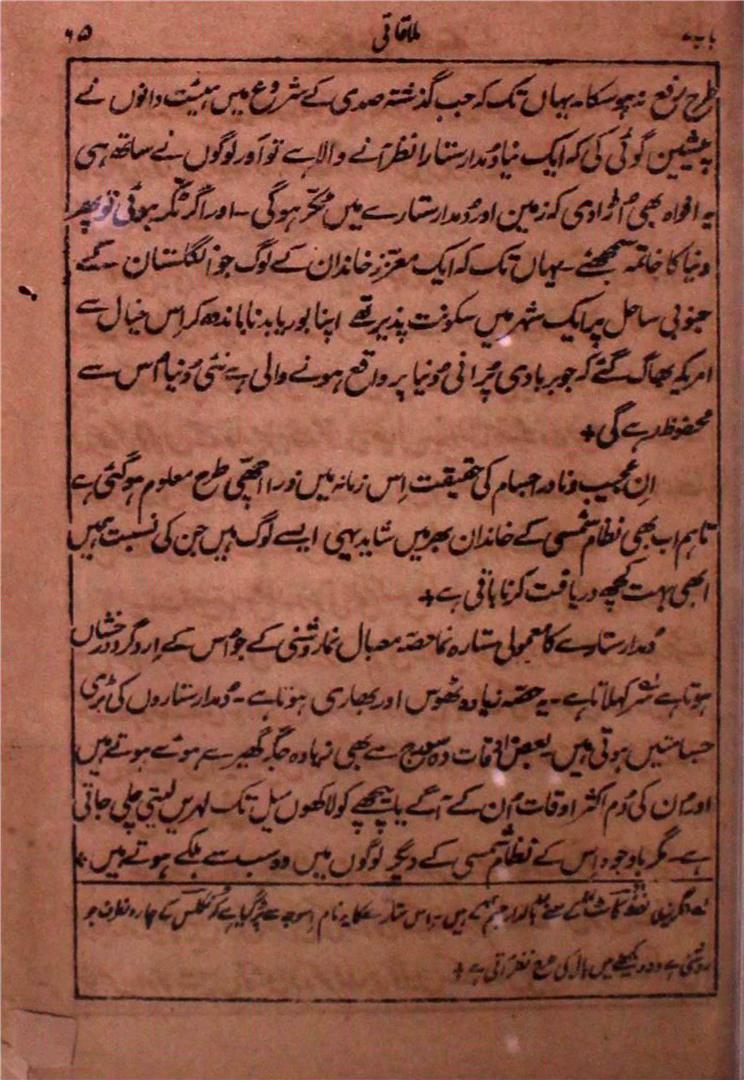 باب ۷ ملاقاتی ۶۵
طرح رفع نہ ہو سکا۔ یہاں تک کہ جب گذشتہ صدی کے شروع میں ہیئت دانوں نے
پیشین گوئی کی کہ ایک نیا دُمدار ستارا نظر آنے والا ہے تو اَور لوگوں نے ساتھ ہی
یہ افواہ بھی اُڑا دی کہ زمین اور دُمدار ستارے میں ٹکّر ہوگی۔ اور اگر ٹکّر ہوئی تو پھر
دنیا کا خاتمہ سمجھئے۔ یہاں تک کہ ایک معزّز خاندان کے لوگ جو انگلستان کے
جنوبی ساحل پر ایک شہر میں سکونت پذیر تھے اپنا بوریا بدنا باندھ کر اِس خیال سے
امریکہ بھاگ گئے کہ جو بربادی پُرانی دُنیا پر واقع ہونے والی ہے نئی دُنیا اُس سے
محفوظ رہے گی +
اِن عجیب و نادر اجسام کی حقیقت اِس زمانہ میں ذرا اچھّی طرح معلوم ہوگئی ہے
تاہم اب بھی نظامِ شمسی کے خاندان بھر میں شاید یہی ایسے لوگ ہیں جن کی نسبت ہمیں
ابھی بہت کچھ دریافت کرنا باقی ہے +
دُمدار ستارے کا معمولی ستارہ نما حصّہ معہ بال نما روشنی کے جو اُس کے اِردگرد درخشاں
ہوتا ہے سر کہلاتا ہے۔ یہ حصّہ زیادہ ٹھوس اور بھاری ہوتا ہے۔ دُمدار ستاروں کی بڑی
جسامتیں ہوتی ہیں۔ بعض اوقات وہ سورج سے بھی زیادہ جگہ گھیرے ہوئے ہوتے ہیں
اور اُن کی دُم اکثر اوقات اُن کے آگے یا پیچھے کو لاکھوں میل تک لہریں لیتی چلی جاتی
ہے۔ مگر باوجود اِس کے نظامِ شمسی کے دیگر لوگوں میں وہ سب سے ہلکے ہوتے ہیں +
انگریزی لفظ کے معنے بالدار جسم کے ہیں۔ اِس ستارے کا یہ نام اِسوجہ سے پڑ گیا ہے کہ کے چاروں طرف جو
روشنی ہے وہ دیکھنے میں بال کی طرح نظر آتی ہے +